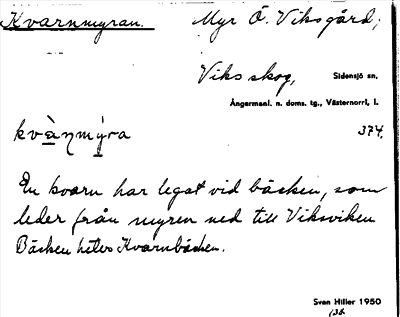 Kvarnmyran. Myr Ö. Viksgård,
Viks skog, Sidensjö sn,
Ångermanl. n. doms. tg., Västernorrl. l.
kvàn̥mýra 374,
En kvarn har legat vid bäcken, som
leder från myren ned till Viksviken
Bäcken hetes Kvarnbäcken.
Sven Hiller 1950